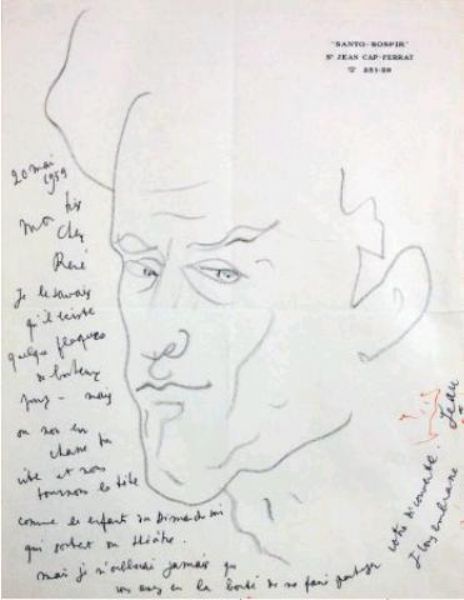 "SANTO-SOSPIR"
ST JEAN CAP-FERRAT
☎ 251-28
20 mai
1959
Mon très
cher
René
Je le savais
qu'il existe
quelques flaques
de
pong - mais
on nous en
chasse
vite et nous
tournons la tête
comme les enfants du Dimanche soir
qui sortent du théâtre.
mais je n'oublierai jamais que
vous avez eu la bonté de me faire partager
votre découverte.
Je vous embrasse
Jean